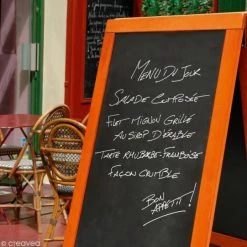 MENU DU JOUR
SALADE COMTESSE
FILET MIGNON GRILLÉ
AU SIROP D'ÉRABLE
TARTE RHUBARBE-FRAMBOISE
FAÇON CRUMBLE
BON
APPETIT!
© creavea